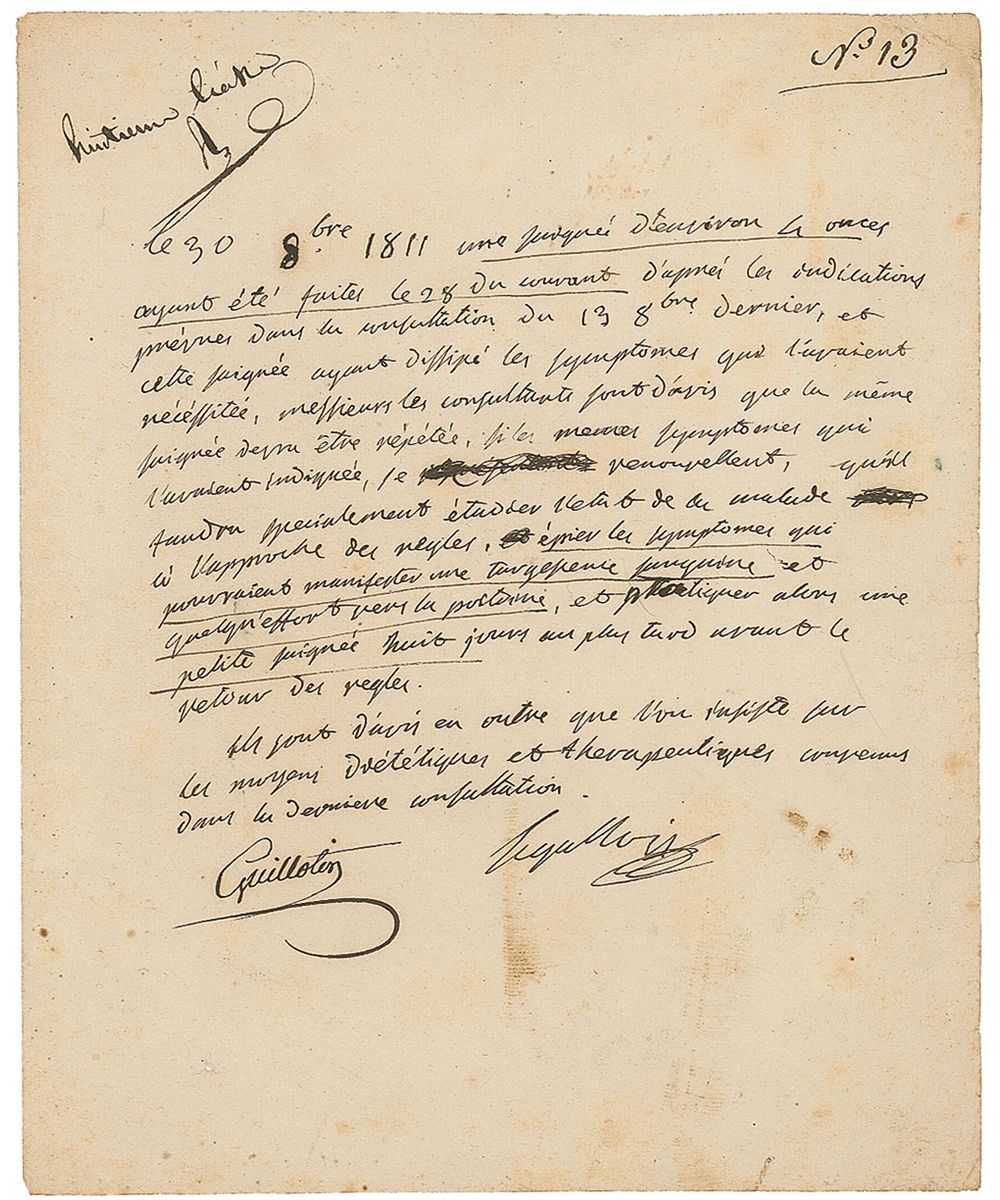 N.º 13
huitieme
le 30 8.bre 1811 une saignée d'environ 4 onces
ayant été faites le 28 du courant d'aprés les indications
prévues dans la consultation du 13 8bre dernier, et
cette saignée ayant dissipé les symptomes qui l'avaient
nécéssitée, messieurs les consultants sont d'avis que la même
saignée devra être répétée, si les memes symptomes qui
l'avaient indiquée, se renouvellent, qu'il
faudra specialement étudier l'etat de la malade
à l'approche des règles, épier les symptomes qui
pourraient manifester une turgescence sanguine et
quelqu'effort vers la poitrine, et pratiquer alors une
petite saignée huit jours au plus tard avant le
retour des regles.
ils sont d'avis en outre que l'on insiste sur
les moyens diététiques et therapeutiques convenus
dans la derniere consultation.
Guillotin
Legallois